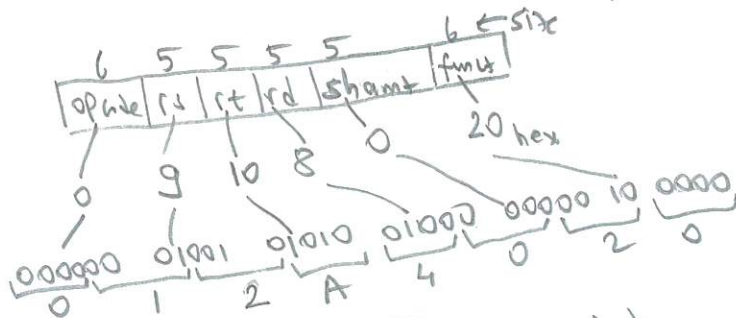 6 5 5 5 5 6 ← size
opcode rs rt rd shamt funct
0 9 10 8 0 20 hex
000000 01001 01010 01000 00000 10 0000
0 1 2 A 4 0 2 0